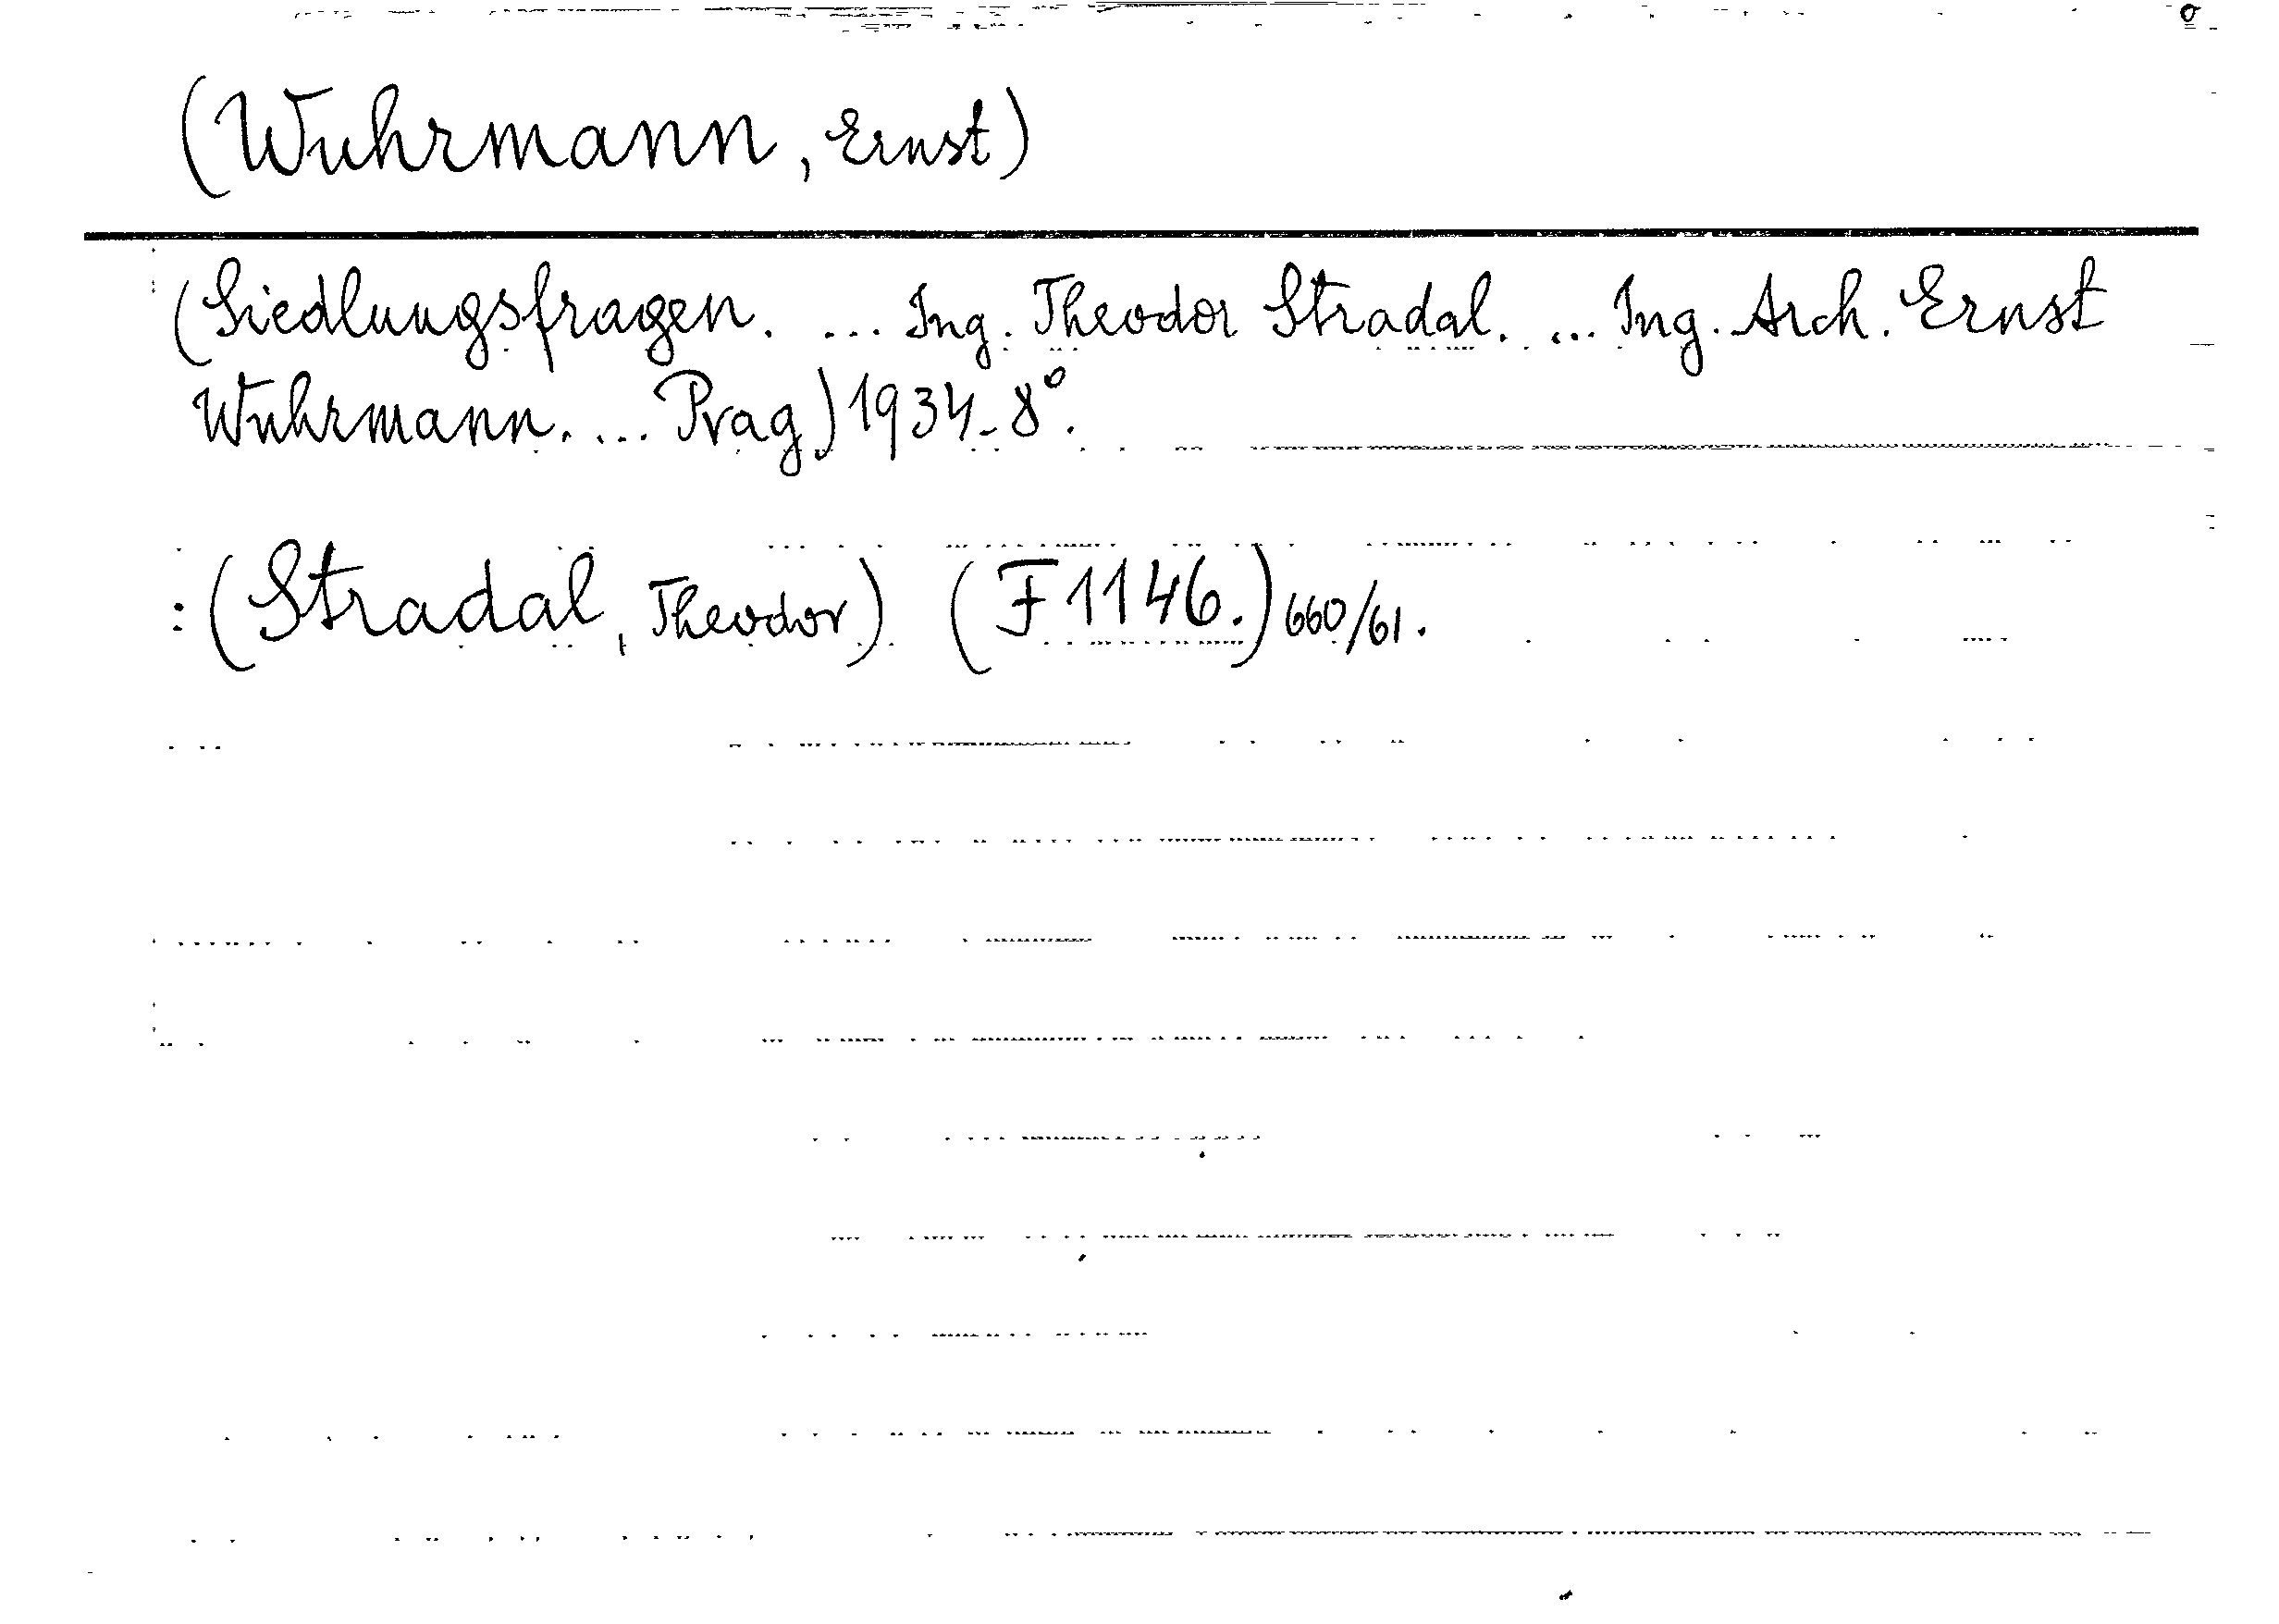 (Wuhrmann, Ernst)
(Siedlungsfragen. ... Ing. Theodor Stradal. ... Ing. Arch. Ernst
Wuhrmann. ... Prag) 1934. 8°.
: (Stradal, Theodor) (F 1146.) 660/61.